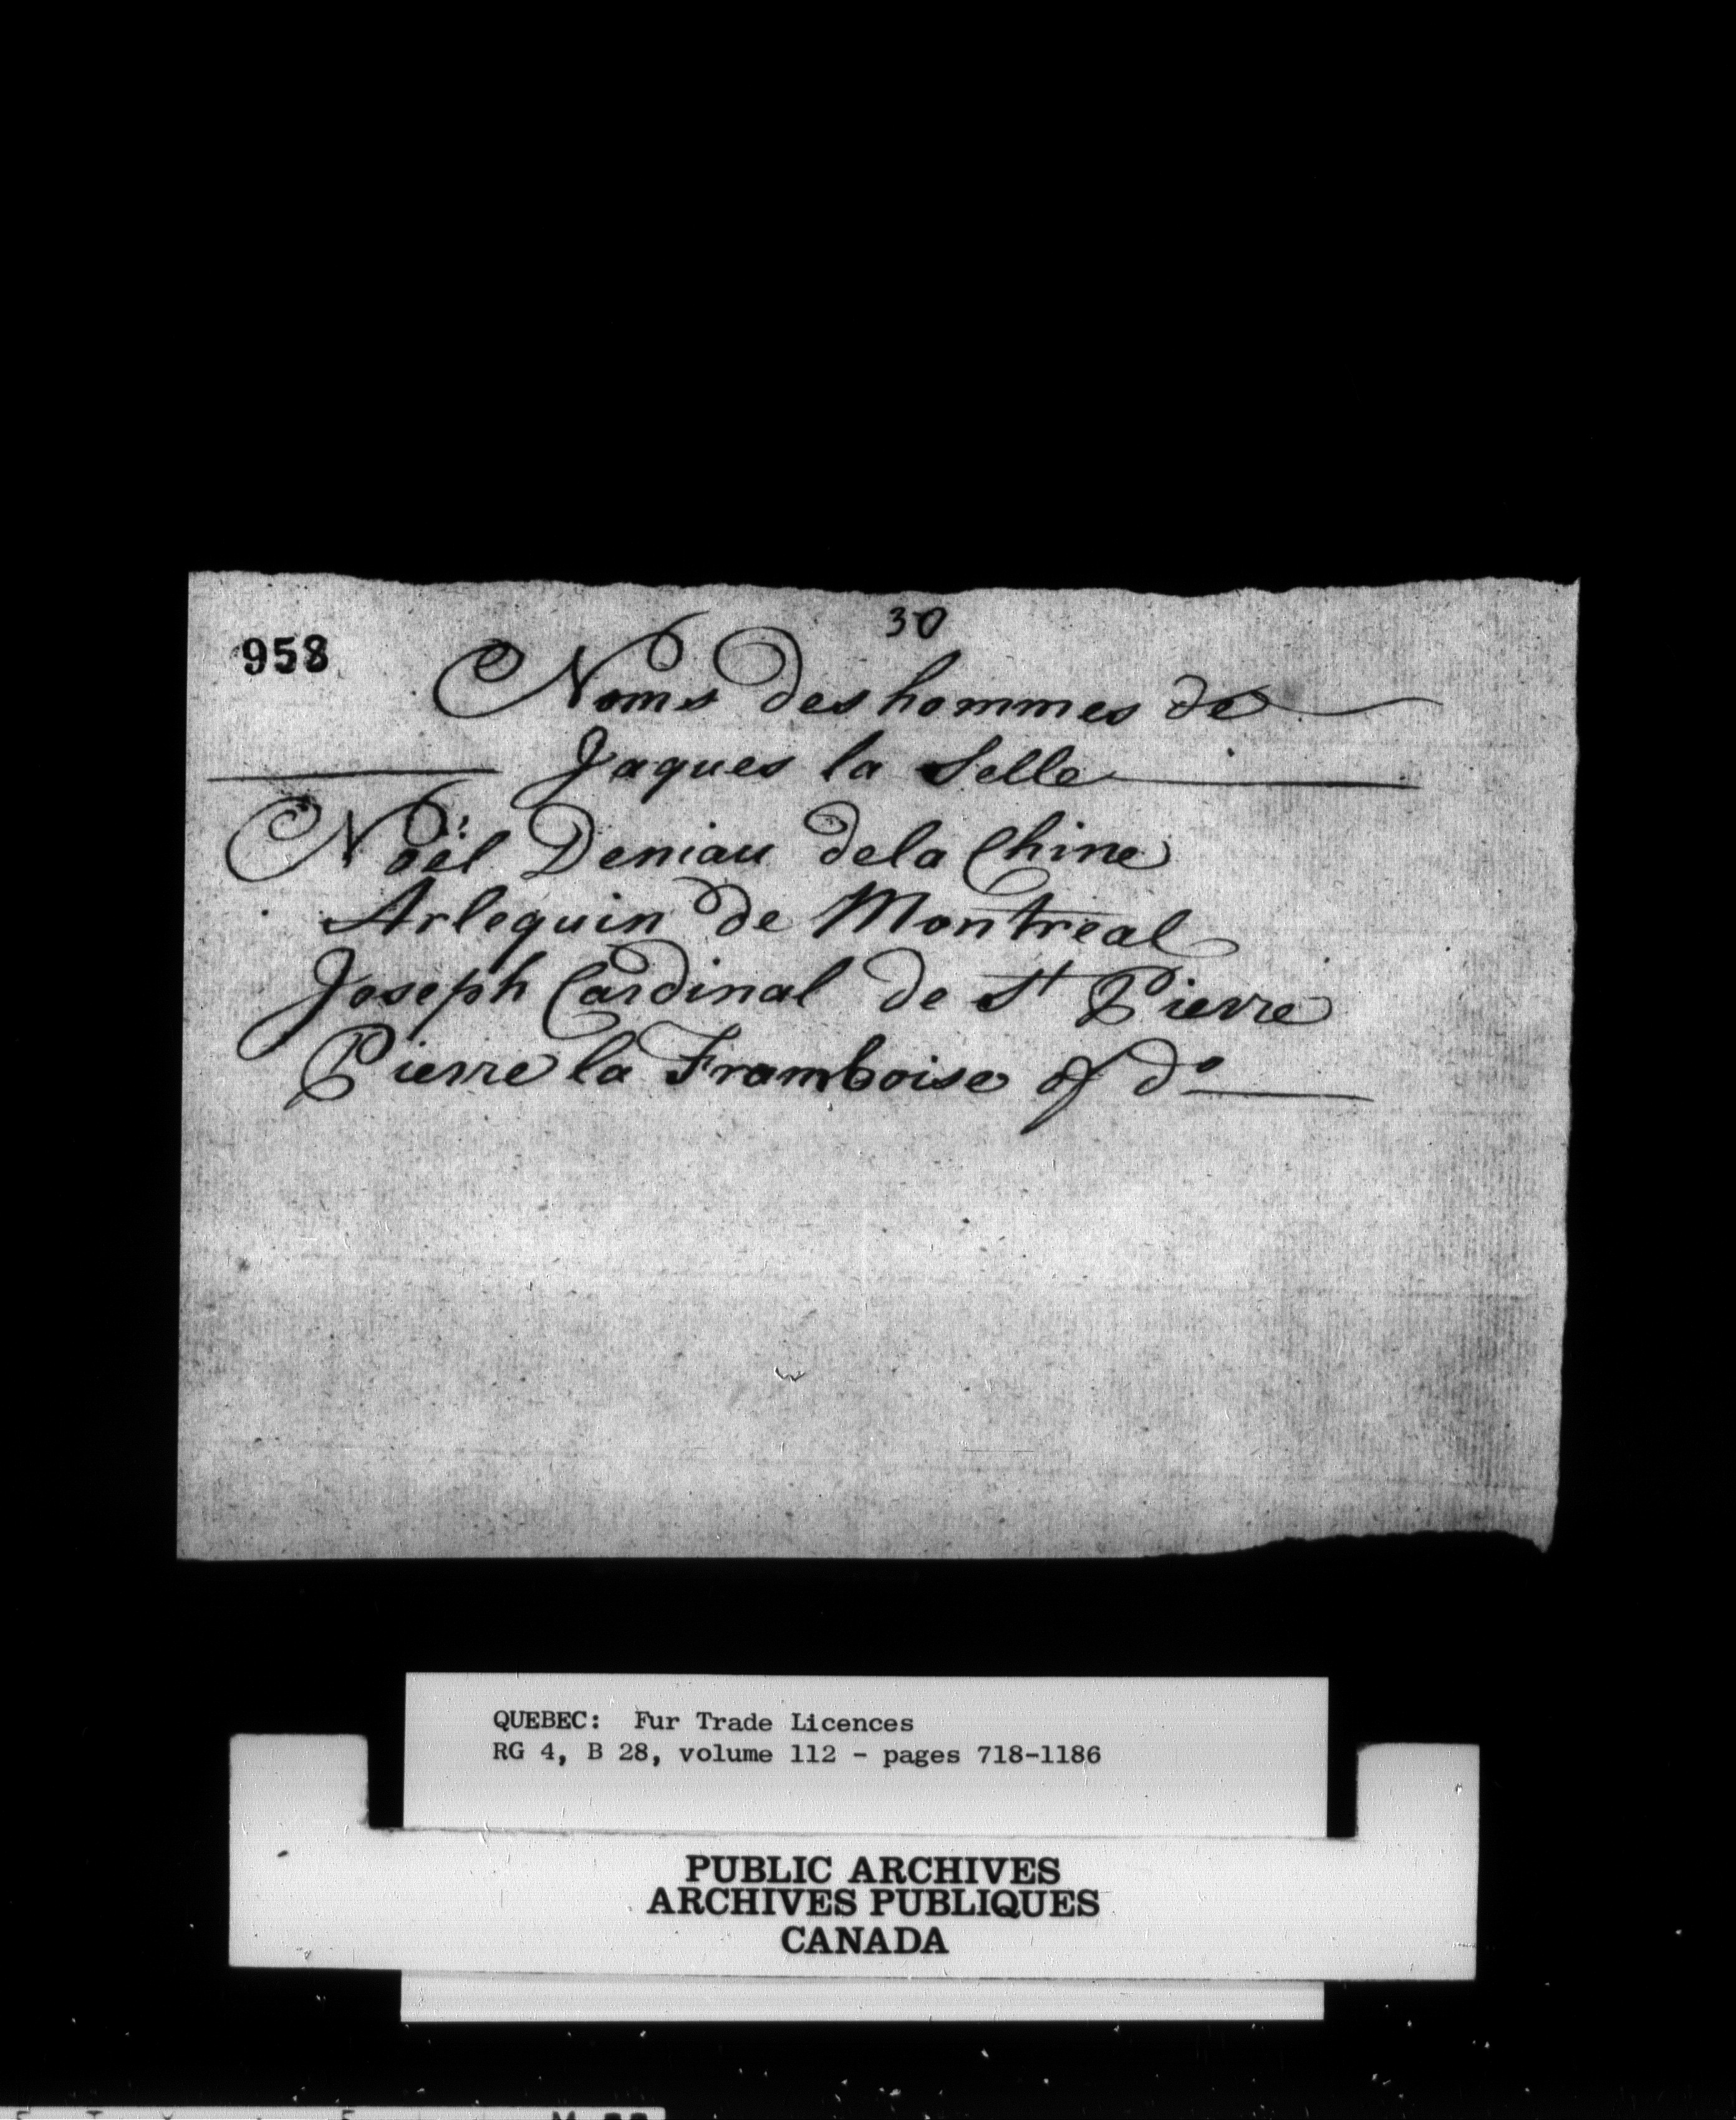 30
958
Noms des hommes de
Jaques la Selle
Noël Deniau dela Chine
Arlequin de Montreal
Joseph Cardinal de St Pierre
Pierre la Framboise of do
QUEBEC: Fur Trade Licences
RG 4, B 28, volume 112 - pages 718-1186
PUBLIC ARCHIVES
ARCHIVES PUBLIQUES
CANADA